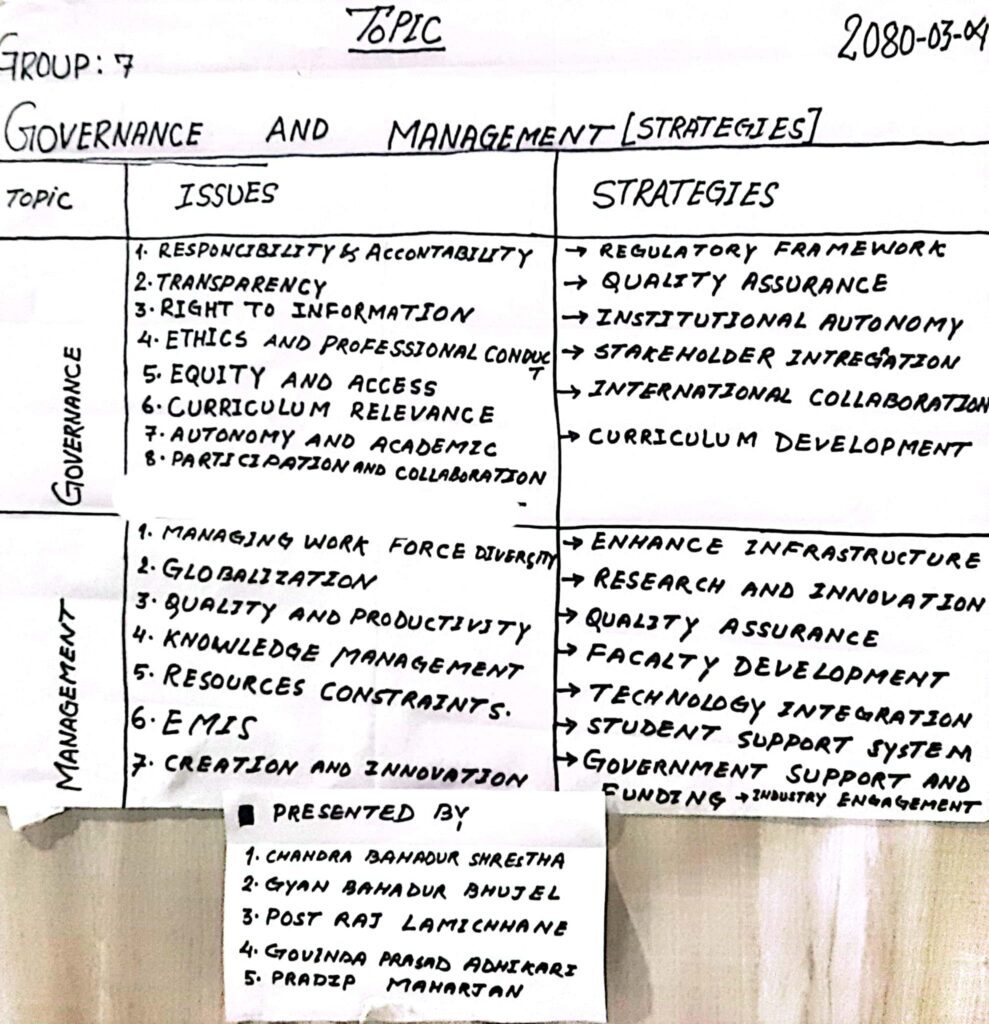 TOPIC
2080-03-04
GROUP: 7
GOVERNANCE AND MANAGEMENT [STRATEGIES]
TOPIC ISSUES STRATEGIES
GOVERNANCE
1. RESPONCIBILITY & ACCONTABILITY
2. TRANSPARENCY
3. RIGHT TO INFORMATION
4. ETHICS AND PROFESSIONAL CONDUCT
5. EQUITY AND ACCESS
6. CURRICULUM RELEVANCE
7. AUTONOMY AND ACADEMIC
8. PARTICIPATION AND COLLABORATION
→ REGULATORY FRAMEWORK
→ QUALITY ASSURANCE
→ INSTITUTIONAL AUTONOMY
→ STAKEHOLDER INTREGATION
→ INTERNATIONAL COLLABORATION
→ CURRICULUM DEVELOPMENT
MANAGEMENT
1. MANAGING WORK FORCE DIVERSITY
2. GLOBALIZATION
3. QUALITY AND PRODUCTIVITY
4. KNOWLEDGE MANAGEMENT
5. RESOURCES CONSTRAINTS.
6. EMIS
7. CREATION AND INNOVATION
→ ENHANCE INFRASTRUCTURE
→ RESEARCH AND INNOVATION
→ QUALITY ASSURANCE
→ FACALTY DEVELOPMENT
→ TECHNOLOGY INTEGRATION
→ STUDENT SUPPORT SYSTEM
→ GOVERNMENT SUPPORT AND
FUNDING → INDUSTRY ENGAGEMENT
PRESENTED BY
1. CHANDRA BAHADUR SHRESTHA
2. GYAN BAHADUR BHUJEL
3. POST RAJ LAMICHHANE
4. GOVINDA PRASAD ADHIKARI
5. PRADIP MAHARJAN